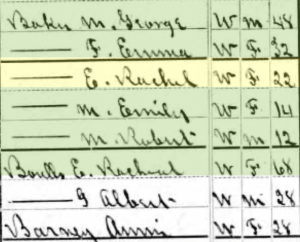 Baker M. George W M 48
—— F. Emma W F 32
—— E. Rachel W F 22
—— M. Emily W F 14
—— M. Robert W M 12
E. Rachael W F 68
—— G Albert W M 28
Barney Annie W F 28